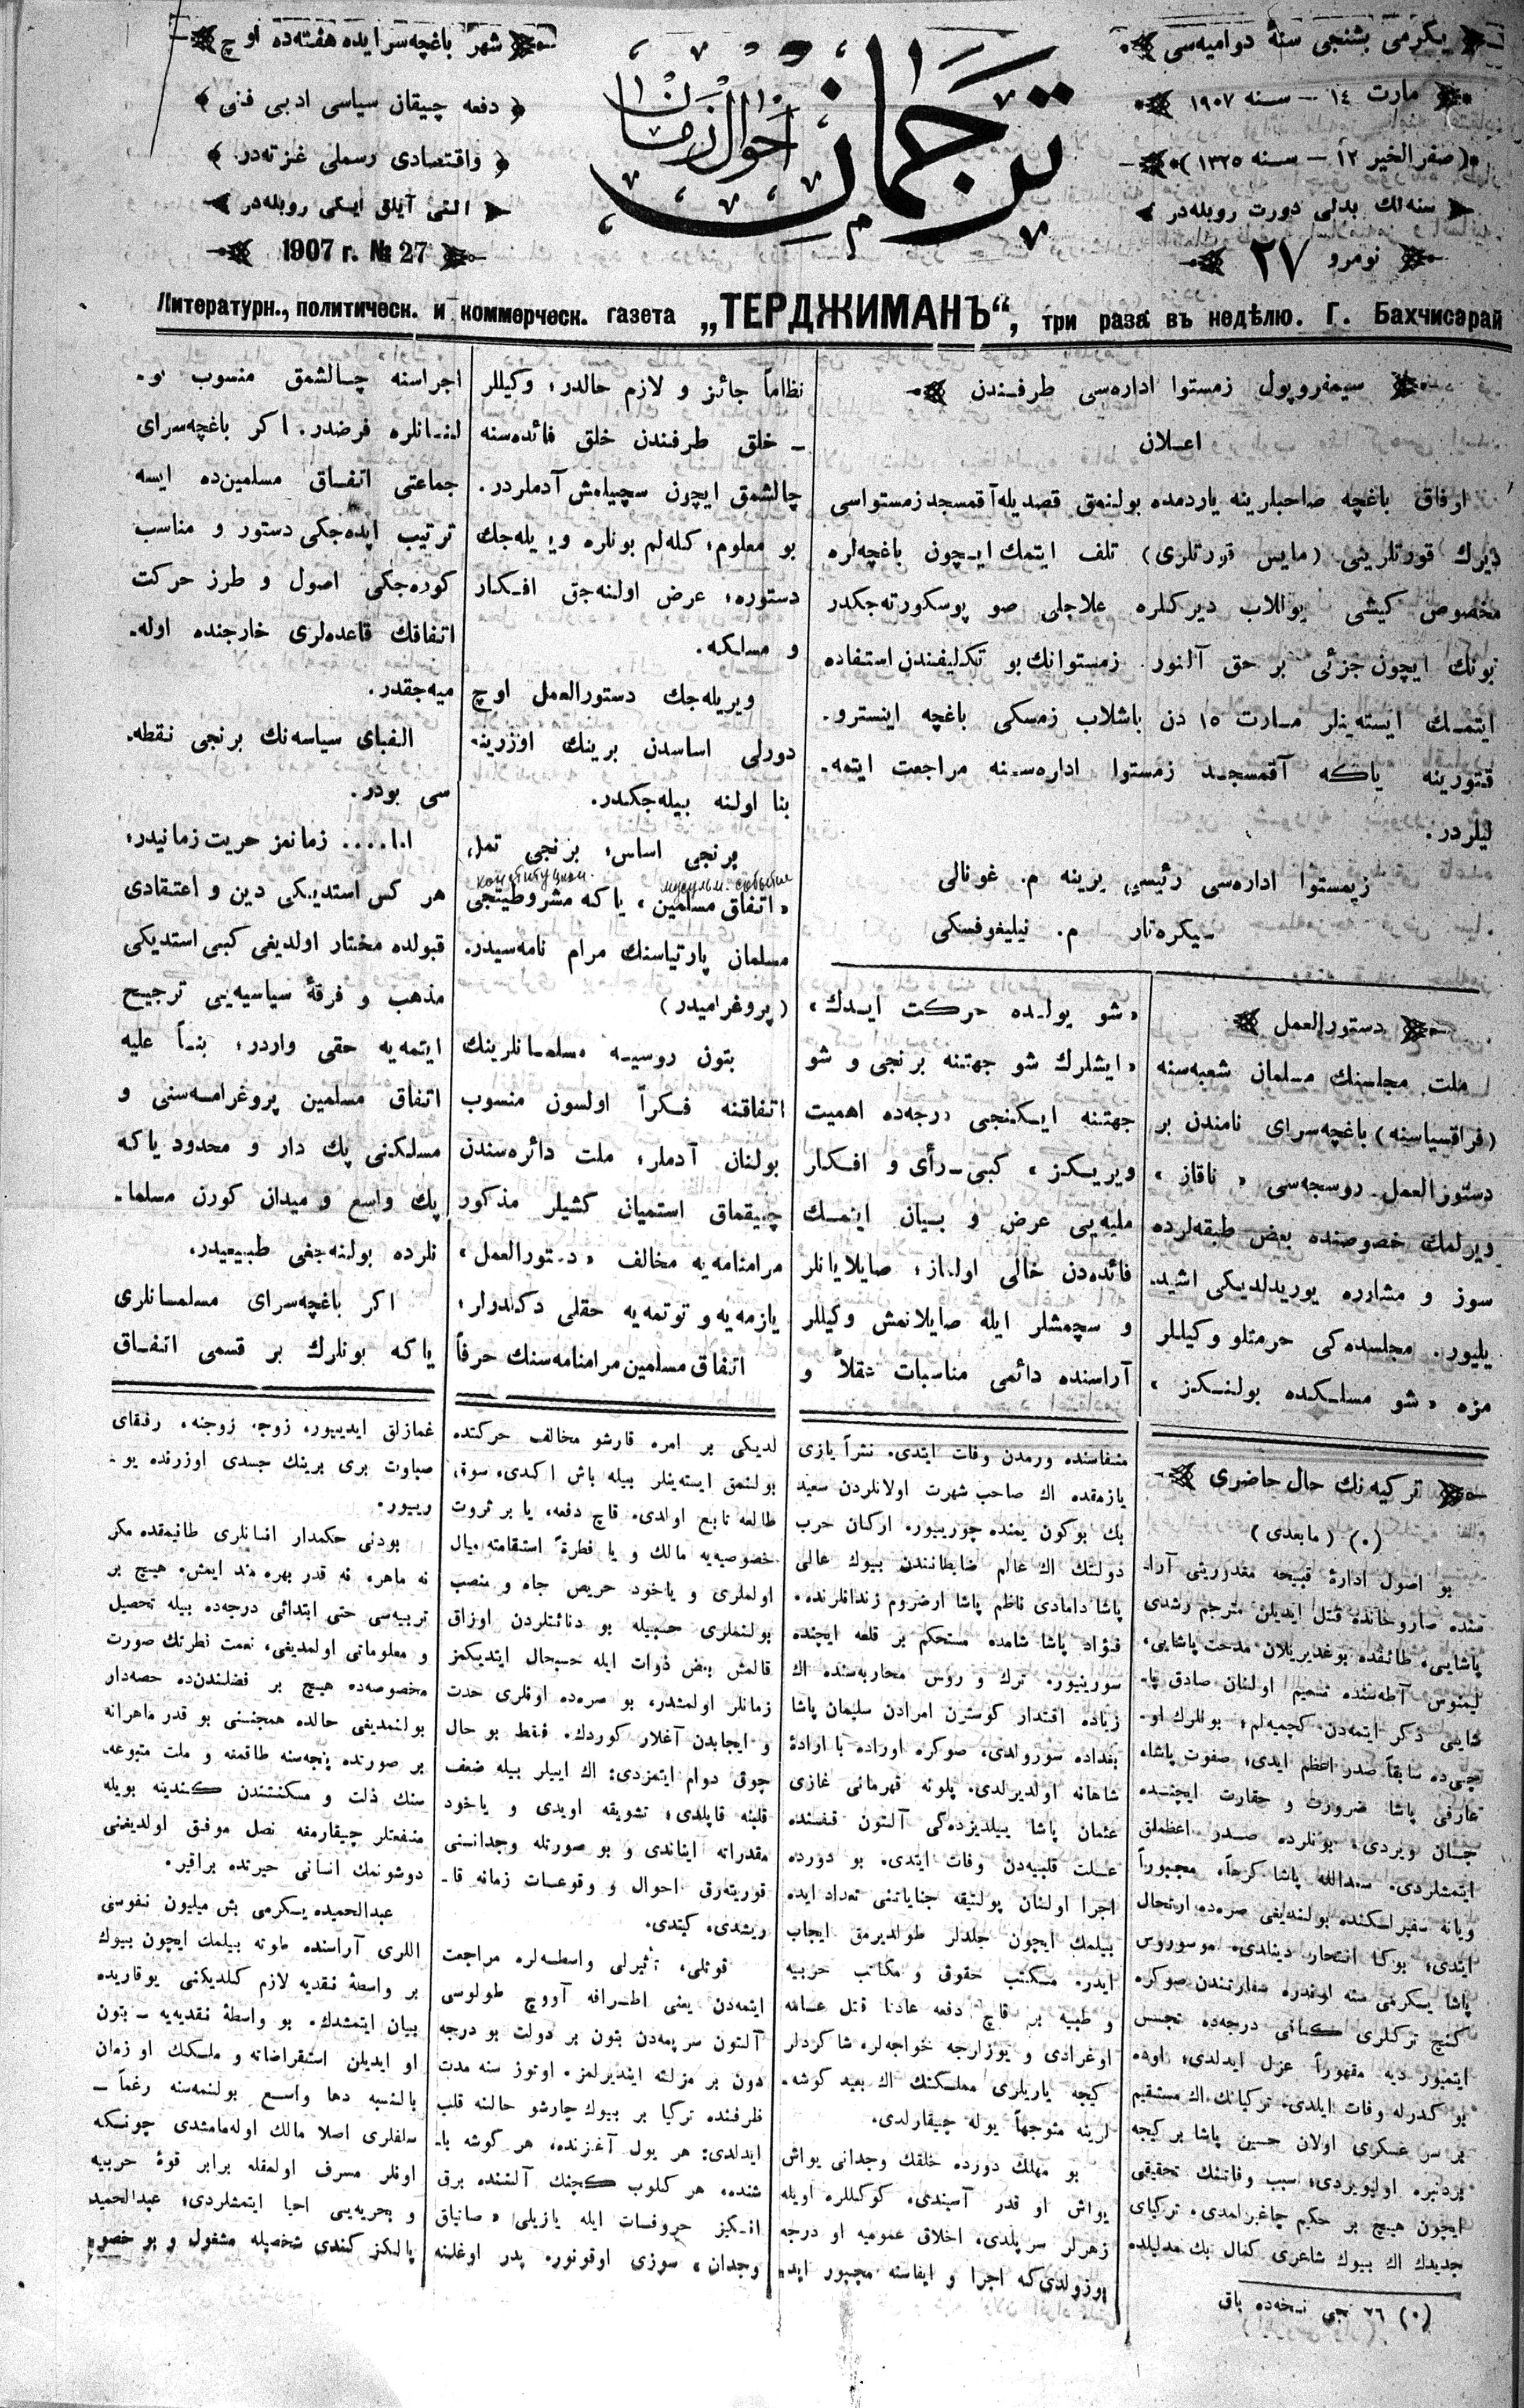 يكرمی بشنجی سنهٔ دواميه‌سی
مارت ١٤ — سنه ١٩٠٧
(صفرالخير ١٢ — سنه ١٣٢٥)
سنه‌لك بدلی دورت روبله‌در
نومرو ٢٧
ترجمان
احوال زمان
شهر باغچه‌سرايده هفته‌ده اوچ
دفعه چيقان سياسی ادبی فنی
واقتصادی رسملی غزته‌در.
التی آيلق ايكی روبله‌در
1907 г. № 27
Литературн., политическ. и коммерческ. газета „ТЕРДЖИМАНЪ“, три раза въ недѣлю. Г. Бахчисарай
سيمفروپول زمستوا اداره‌سی طرفندن
اعلان
اوفاق باغچه صاحبلرينه ياردمده بولنمق قصديله آقمسجد زمستواسی
ديرك قورتلرينی (مايس قورتلری) تلف ايتمك ايچون باغچه‌لره
مخصوص كيشی يوللاب ديركلره علاجلی صو پوسكورته‌جكدر
بونك ايچون جزئی بر حق آلنور. زمستوانك بو تكليفندن استفاده
ايتمك ايسته‌ينلر مارت ١٥ دن باشلاب زمسكی باغچه اينسترو-
قتورينه ياكه آقمسجد زمستوا اداره‌سنه مراجعت ايتمه-
ليلردر.
زيمستوا اداره‌سی رئيسی يرينه م. غونالی
سيكره‌تار م. نيليغوفسكی
دستورالعمل
ملت مجلسنك مسلمان شعبه‌سنه
(فراقسياسنه) باغچه‌سرای نامندن بر
دستورالعمل روسجه‌سی « ناقاز »
ويرلمك خصوصنده بعض طبقه‌لرده
سوز و مشاوره يوريدلديكی اشيد-
يليور. مجلسده‌كی حرمتلو وكيللر
مزه « شو مسلكده بولنكز »
« شو يولده حركت ايدك »
« ايشلرك شو جهتنه برنجی و شو
جهتنه ايكنجی درجه‌ده اهميت
ويريكز » كبی رأی و افكار
مليه‌يی عرض و بيان ايتمك
فائده‌دن خالی اولماز؛ صايلايانلر
و سچمشلر ايله صايلانمش وكيللر
آراسنده دائمی مناسبات عقلاً و
نظاماً جائز و لازم حالدر؛ وكيللر
— خلق طرفندن خلق فائده‌سنه
چالشمق ايچون سچيلمش آدملردر.
بو معلوم؛ كله‌لم بونلره ويريله‌جك
دستوره؛ عرض اولنه‌جق افكار
و مسلكه.
ويريله‌جك دستورالعمل اوچ
دورلی اساسدن برينك اوزرينه
بنا اولنه بيله‌جكدر.
برنجی اساس؛ برنجی تمل
« اتفاق مسلمين » ياكه مشروطيتجی
مسلمان پارتياسنك مرام نامه‌سيدر.
(پروغراميدر)
بتون روسيه مسلمانلرينك
اتفاقنه فكراً اولسون منسوب
بولنان آدملر؛ ملت دائره‌سندن
چيقماق استميان كشيلر مذكور
مرامنامه‌يه مخالف « دستورالعمل »
يازمه‌يه و توتمه‌يه حقلی دكلدرلر؛
اتفاق مسلمين مرامنامه‌سنك حرفاً
اجراسنه چالشمق منسوب او-
لنانلره فرضدر. اكر باغچه‌سرای
جماعتی اتفاق مسلمين‌ده ايسه
ترتيب ايده‌جكی دستور و مناسب
كوره‌جكی اصول و طرز حركت
اتفاقك قاعده‌لری خارجنده اوله-
ميه‌جقدر.
الفبای سياسه‌نك برنجی نقطه-
سی بودر.
اما.... زمانمز حريت زمانيدر؛
هر كس استديكی دين و اعتقادی
قبولده مختار اولديغی كبی استديكی
مذهب و فرقهٔ سياسيه‌يی ترجيح
ايتمه‌يه حقی واردر؛ بنأ عليه
اتفاق مسلمين پروغرامه‌سنی و
مسلكنی پك دار و محدود ياكه
پك واسع و ميدان كورن مسلما-
نلرده بولنه‌جغی طبيعيدر.
اكر باغچه‌سرای مسلمانلری
ياكه بونلرك بر قسمی اتفاق
تركيه‌نك حال حاضری
(٠) (مابعدی)
بو اصول ادارهٔ قبيحه مقدوريتی آرا-
سنده صاروخانده قتل ايديلن مترجم رشدی
پاشايی، طائفده بوغديريلان مدحت پاشايی،
ليمنوس آطه‌سنده تسميم اولنان صادق پا-
شايی ذكر ايتمه‌دن كچميه‌لم؛ بونلرك او-
چی‌ده سابقاً صدر اعظم ايدی؛ صفوت پاشا،
عارفی پاشا ضرورت و حقارت ايچنده
جان ويردی. بونلرده صدر اعظملق
ايتمشلردی. سعدالله پاشا كرهاً، مجبوراً
ويانه سفيرلكنده بولنديغی صره‌ده ارتحال
ايتدی؛ بوكا انتحار دينلدی. موسوروس
پاشا يكرمی سنه لوندره سفارتندن صوكره
كنج تركلری كافی درجه‌ده تجسس
ايتميور ديه مقهوراً عزل ايدلدی؛ اوده
بو كدرله وفات ايلدی. تركيانك اك مستقيم
بر سر عسكری اولان حسين پاشا بر كيجه
بردنبره اوليويردی؛ سبب وفاتنك تحقيقی
ايچون هيچ بر حكيم چاغيرلمدی. تركيای
جديدك اك بيوك شاعری كمال بك مدللیده
(٠) ٢٦ نجی نسخه‌ده باق
منفاسنده ورمدن وفات ايتدی. نثراً يازی
يازمقده اك صاحب شهرت اولانلردن سعيد
بك بوكون يمنده چورييور. اركان حرب
دولتك اك عالم ضابطانندن بيوك عالی
پاشا دامادی ناظم پاشا ارضروم زندانلرنده.
فؤاد پاشا شامده مستحكم بر قلعه ايچنده
سورينيور. ترك و روس محاربه‌سنده اك
زياده اقتدار كوسترن امرادن سليمان پاشا
بغداده سورولدی، صوكره اوراده با ارادهٔ
شاهانه اولديرلدی. پلونه قهرمانی غازی
عثمان پاشا ييلديزده‌كی آلتون قفسنده
علت قلبيه‌دن وفات ايتدی. بو دورده
اجرا اولنان پولتيقه جناياتنی تعداد ايده
بيلمك ايچون جلدلر طولديرمق ايجاب
ايدر. مكتب حقوق و مكاتب حربيه
و طبيه بر قاچ دفعه عادتا قتل عامه
اوغرادی و يوزلرجه خواجه‌لره شاكردلر
كيجه ياريلری مملكتك اك بعيد كوشه-
لرينه متوجهاً يوله چيقارلدی.
بو مهلك دوزده خلقك وجدانی يواش
يواش او قدر آسيندی، كوكللره اويله
زهرلر سرپلدی، اخلاق عموميه او درجه
بوزولدی‌كه اجرا و ايفاسنه مجبور ايد-
لديكی بر امره قارشو مخالف حركتده
بولنمق ايسته‌ينلر بيله باش اكدی، سوق
طالعه تابع اولدی. قاچ دفعه، يا بر ثروت
خصوصيه‌يه مالك و يا فطرةً استقامته ميال
اولملری و ياخود حريص جاه و منصب
بولنملری حسبيله بو دنائتلردن اوزاق
قالمش بعض ذوات ايله حسبحال ايتديكمز
زمانلر اولمشدر، بو صره‌ده اونلری حدت
و ايجابدن آغلار كوردك. فقط بو حال
چوق دوام ايتمزدی: اك اييلر بيله ضعف
قلبنه قاپلدی؛ تشويقه اويدی و ياخود
مقدراته ايناندی و بو صورتله وجداننی
قوريته‌رق احوال و وقوعات زمانه قا-
ريشدی، كيتدی.
قوتلی، تأثيرلی واسطه‌لره مراجعت
ايتمه‌دن يعنی اطرافه آووچ طولوسی
آلتون سرپمه‌دن بتون بر دولت بو درجه
دون بر مزلته اينديرلمز. اوتوز سنه مدت
ظرفنده تركيا بر بيوك چارشو حالنه قلب
ايدلدی: هر يول آغزنده، هر كوشه با-
شنده، هر كلوب كچنك آلننده برق
انكيز حروفات ايله يازيلی « صاتيلق
وجدان » سوزی اوقونور. پدر اوغلنه
غمازلق ايدييور، زوج زوجنه، رفقای
صباوت بری برينك جسدی اوزرنده يو-
رييور.
بودنی حكمدار انسانلری طانيمقده مكر
نه ماهر، نه قدر بهره‌مند ايمش. هيچ بر
تربيه‌سی حتی ابتدائی درجه‌ده بيله تحصيل
و معلوماتی اولمديغی، نعمت فطرتك صورت
مخصوصه‌ده هيچ بر فضلندن‌ده حصه‌دار
بولنمديغی حالده همجنسنی بو قدر ماهرانه
بر صورتده پنجه‌سنه طاقمغه و ملت متبوعه-
سنك ذلت و مسكنتندن كندينه بويله
منفعتلر چيقارمغه نصل موفق اولديغنی
دوشونمك انسانی حيرتده براقير.
عبدالحميده يكرمی بش ميليون نفوسی
اللری آراسنده طوته بيلمك ايچون بيوك
بر واسطهٔ نقديه لازم كلديكنی يوقاريده
بيان ايتمشدك. بو واسطهٔ نقديه‌يه — بتون
او ايديلن استقراضاته و ملكك او زمان
بالنسبه دها واسع بولنمه‌سنه رغماً —
سلفلری اصلا مالك اوله‌مامشدی چونكه
اونلر مسرف اولمقله برابر قوهٔ حربيه
و بحريه‌يی احيا ايتمشلردی؛ عبدالحميد
يالكز كندی شخصيله مشغول و بو خصو-